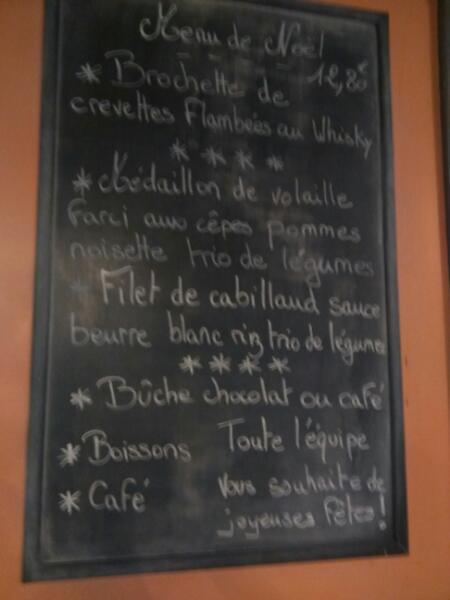 Menu de Noël
12,80€
* Brochette de
crevettes Flambées au Whisky
* * * *
* Médaillon de volaille
farci aux cêpes pommes
noisette trio de légumes
* Filet de cabillaud sauce
beurre blanc riz trio de légumes
* * * *
* Bûche chocolat ou café
* Boissons
* Café
Toute l'équipe
vous souhaite de
joyeuses fêtes!